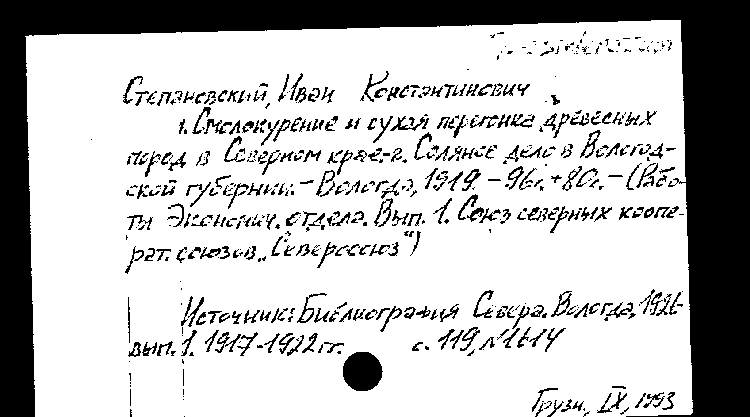 Степановский, Иван Константинович
1. Смолокурение и сухая перегонка древесных
пород в Северном крае.-2. Соляное дело в Вологод-
ской губернии.- Вологда, 1919. - 96с. + 80с. - (Рабо-
ты Экономич. отдела. Вып. 1. Союз северных коопе-
рат. союзов „Северосоюз“)
Источник: Библиография Севера. Вологда, 1926
вып. 1. 1917-1922 гг. с. 119, №1614
Грузи, IX, 1993